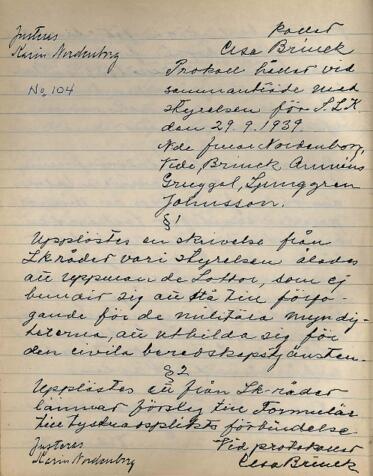 Justeras
Karin Nordenborg
kollet
Elsa Brinck
No 104
Protokoll hållet vid
sammanträde med
styrelsen för S.L.K.
den 29.9.1939
Nde fruar Nordenborg,
Vide, Brinck
Ljunggren
Johnsson.
§1
Upplästes en skrivelse från
Lk-rådet vari styrelsen ålades
att uppmana de Lottor, som ej
bundit sig att stå till förfo-
gande för de militära myndig-
heterna, att utbilda sig för
den civila beredskapstjänsten.
§2
Upplästes ett från Lk-rådet
lämnat förslag till Formulär
till tystnadsplikts förbindelse
Justeras
Karin Nordenborg
Vid protokollet
Elsa Brinck